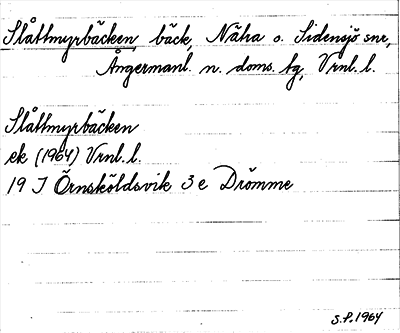 Slåttmyrbäcken, bäck, Nätra o. Sidensjö snr,
Ångermanl. n. doms. tg, Vrnl. l.
Slåttmyrbäcken
ek (1964) Vrnl. l.
19 J Örnsköldsvik 3 e Drömme
S.P. 1964